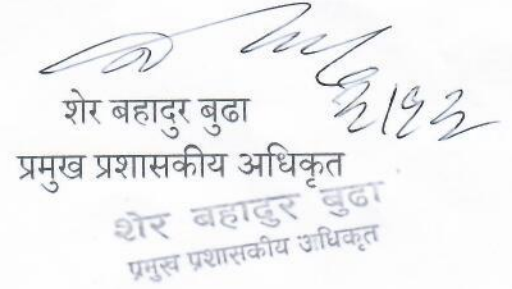 शेर बहादुर बुढा
प्रमुख प्रशासकीय अधिकृत
शेर बहादुर बुढा
प्रमुख प्रशासकीय अधिकृत